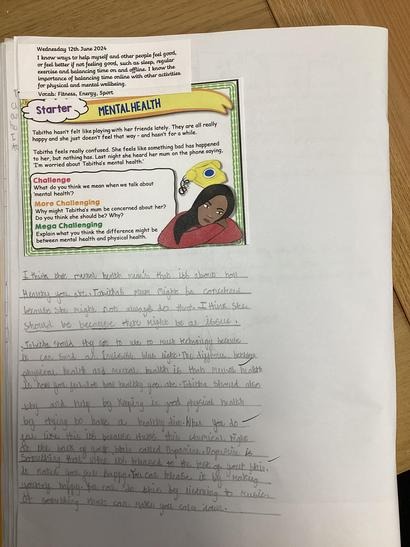 Wednesday 12th June 2024
I know ways to help myself and other people feel good,
or feel better if not feeling good, such as sleep, regular
exercise and balancing time on and offline. I know the
importance of balancing time online with other activities
for physical and mental wellbeing.
Vocab: Fitness, Energy, Sport
Starter
MENTAL HEALTH
Tabitha hasn't felt like playing with her friends lately. They are all really
happy and she just doesn't feel that way - and hasn't for a while.
Tabitha feels really confused. She feels like something bad has happened
to her, but nothing has. Last night she heard her mum on the phone saying,
'I'm worried about Tabitha's mental health.'
Challenge
What do you think we mean when we talk about
'mental health'?
More Challenging
Why might Tabitha's mum be concerned about her?
Do you think she should be? Why?
Mega Challenging
Explain what you think the difference might be
between mental health and physical health.
I think that mental health means that its about how
Healthy you are. Tabitha's Mum might be concerned
because she might not always do them. I think she
should be because there might be a issue.
Tabitha should try not to use to much technology because
it can send a invisible blue light. The difference between
physical health and mental health is that mental health
is how you feel not how healthy you are. Tabitha should also
try and help by keeping in good physical health
by trying to have a healthy diet. After you do
you like this its because theres this chemical right
at the back of your brain called Dopamine. Dopamine is
something that when its released to the rest of your brain,
it makes you feel happy. You can release it by making
yourself happy. You can do this by listening to music
or something that can make you calm down.